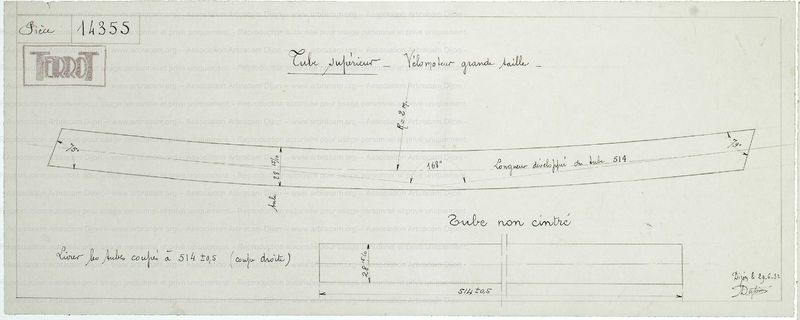 Pièce 14355
TERROT
Tube supérieur - Vélomoteur grande taille -
R = 2 m.
168°
Longueur développée du tube 514
tube 28 15/10
Tube non cintré
Livrer les tubes coupés à 514 ±0,5 (coupe droite)
28 15/10
514 ±0,5
Dijon le 29-6-32